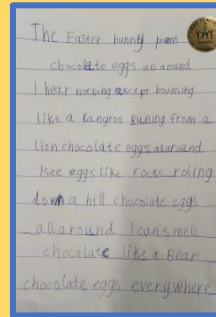 The Easter bunny poem
chocolate eggs all around
I hear nothing except bounsing
like a kangroo runing from a
lion chocolate eggs allaround
I see eggs like rocks roling
down a hill chocolate eggs
all around I can smell
chocolate like a Bear
chocolate eggs everywhere